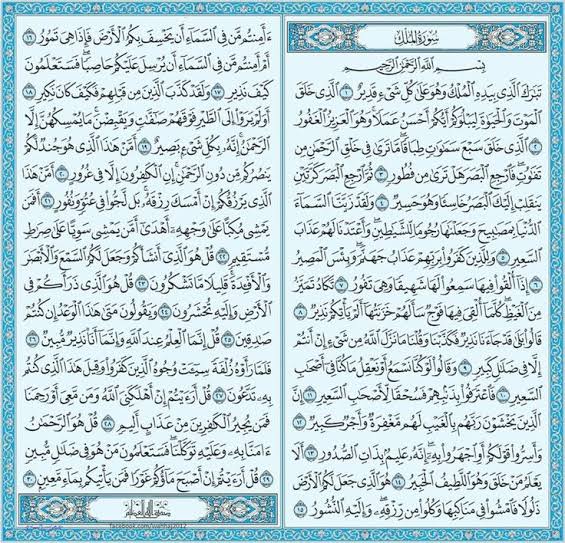 سُورَةُ المُلْكِ
بِسْمِ ٱللَّهِ ٱلرَّحْمَٰنِ ٱلرَّحِيمِ
تَبَٰرَكَ ٱلَّذِى بِيَدِهِ ٱلْمُلْكُ وَهُوَ عَلَىٰ كُلِّ شَىْءٍ قَدِيرٌ ١ ٱلَّذِى خَلَقَ
ٱلْمَوْتَ وَٱلْحَيَوٰةَ لِيَبْلُوَكُمْ أَيُّكُمْ أَحْسَنُ عَمَلًا وَهُوَ ٱلْعَزِيزُ ٱلْغَفُورُ
٢ ٱلَّذِى خَلَقَ سَبْعَ سَمَٰوَٰتٍ طِبَاقًا مَّا تَرَىٰ فِى خَلْقِ ٱلرَّحْمَٰنِ مِن
تَفَٰوُتٍ فَٱرْجِعِ ٱلْبَصَرَ هَلْ تَرَىٰ مِن فُطُورٍ ٣ ثُمَّ ٱرْجِعِ ٱلْبَصَرَ كَرَّتَيْنِ
يَنقَلِبْ إِلَيْكَ ٱلْبَصَرُ خَاسِئًا وَهُوَ حَسِيرٌ ٤ وَلَقَدْ زَيَّنَّا ٱلسَّمَآءَ
ٱلدُّنْيَا بِمَصَٰبِيحَ وَجَعَلْنَٰهَا رُجُومًا لِّلشَّيَٰطِينِ وَأَعْتَدْنَا لَهُمْ عَذَابَ
ٱلسَّعِيرِ ٥ وَلِلَّذِينَ كَفَرُوا۟ بِرَبِّهِمْ عَذَابُ جَهَنَّمَ وَبِئْسَ ٱلْمَصِيرُ
٦ إِذَآ أُلْقُوا۟ فِيهَا سَمِعُوا۟ لَهَا شَهِيقًا وَهِىَ تَفُورُ ٧ تَكَادُ تَمَيَّزُ
مِنَ ٱلْغَيْظِ كُلَّمَآ أُلْقِىَ فِيهَا فَوْجٌ سَأَلَهُمْ خَزَنَتُهَآ أَلَمْ يَأْتِكُمْ نَذِيرٌ ٨
قَالُوا۟ بَلَىٰ قَدْ جَآءَنَا نَذِيرٌ فَكَذَّبْنَا وَقُلْنَا مَا نَزَّلَ ٱللَّهُ مِن شَىْءٍ إِنْ أَنتُمْ
إِلَّا فِى ضَلَٰلٍ كَبِيرٍ ٩ وَقَالُوا۟ لَوْ كُنَّا نَسْمَعُ أَوْ نَعْقِلُ مَا كُنَّا فِىٓ أَصْحَٰبِ
ٱلسَّعِيرِ ١٠ فَٱعْتَرَفُوا۟ بِذَنۢبِهِمْ فَسُحْقًا لِّأَصْحَٰبِ ٱلسَّعِيرِ ١١ إِنَّ
ٱلَّذِينَ يَخْشَوْنَ رَبَّهُم بِٱلْغَيْبِ لَهُم مَّغْفِرَةٌ وَأَجْرٌ كَبِيرٌ ١٢
وَأَسِرُّوا۟ قَوْلَكُمْ أَوِ ٱجْهَرُوا۟ بِهِۦٓ إِنَّهُۥ عَلِيمٌۢ بِذَاتِ ٱلصُّدُورِ ١٣ أَلَا
يَعْلَمُ مَنْ خَلَقَ وَهُوَ ٱللَّطِيفُ ٱلْخَبِيرُ ١٤ هُوَ ٱلَّذِى جَعَلَ لَكُمُ ٱلْأَرْضَ
ذَلُولًا فَٱمْشُوا۟ فِى مَنَاكِبِهَا وَكُلُوا۟ مِن رِّزْقِهِۦ وَإِلَيْهِ ٱلنُّشُورُ ١٥
ءَأَمِنتُم مَّن فِى ٱلسَّمَآءِ أَن يَخْسِفَ بِكُمُ ٱلْأَرْضَ فَإِذَا هِىَ تَمُورُ ١٦
أَمْ أَمِنتُم مَّن فِى ٱلسَّمَآءِ أَن يُرْسِلَ عَلَيْكُمْ حَاصِبًا فَسَتَعْلَمُونَ
كَيْفَ نَذِيرِ ١٧ وَلَقَدْ كَذَّبَ ٱلَّذِينَ مِن قَبْلِهِمْ فَكَيْفَ كَانَ نَكِيرِ ١٨
أَوَلَمْ يَرَوْا۟ إِلَى ٱلطَّيْرِ فَوْقَهُمْ صَٰٓفَّٰتٍ وَيَقْبِضْنَ مَا يُمْسِكُهُنَّ إِلَّا
ٱلرَّحْمَٰنُ إِنَّهُۥ بِكُلِّ شَىْءٍۭ بَصِيرٌ ١٩ أَمَّنْ هَٰذَا ٱلَّذِى هُوَ جُندٌ لَّكُمْ
يَنصُرُكُم مِّن دُونِ ٱلرَّحْمَٰنِ إِنِ ٱلْكَٰفِرُونَ إِلَّا فِى غُرُورٍ ٢٠ أَمَّنْ هَٰذَا
ٱلَّذِى يَرْزُقُكُمْ إِنْ أَمْسَكَ رِزْقَهُۥ بَل لَّجُّوا۟ فِى عُتُوٍّ وَنُفُورٍ ٢١ أَفَمَن
يَمْشِى مُكِبًّا عَلَىٰ وَجْهِهِۦٓ أَهْدَىٰٓ أَمَّن يَمْشِى سَوِيًّا عَلَىٰ صِرَٰطٍ
مُّسْتَقِيمٍ ٢٢ قُلْ هُوَ ٱلَّذِىٓ أَنشَأَكُمْ وَجَعَلَ لَكُمُ ٱلسَّمْعَ وَٱلْأَبْصَٰرَ
وَٱلْأَفْـِٔدَةَ قَلِيلًا مَّا تَشْكُرُونَ ٢٣ قُلْ هُوَ ٱلَّذِى ذَرَأَكُمْ فِى
ٱلْأَرْضِ وَإِلَيْهِ تُحْشَرُونَ ٢٤ وَيَقُولُونَ مَتَىٰ هَٰذَا ٱلْوَعْدُ إِن كُنتُمْ
صَٰدِقِينَ ٢٥ قُلْ إِنَّمَا ٱلْعِلْمُ عِندَ ٱللَّهِ وَإِنَّمَآ أَنَا۠ نَذِيرٌ مُّبِينٌ ٢٦
فَلَمَّا رَأَوْهُ زُلْفَةً سِيٓـَٔتْ وُجُوهُ ٱلَّذِينَ كَفَرُوا۟ وَقِيلَ هَٰذَا ٱلَّذِى كُنتُم
بِهِۦ تَدَّعُونَ ٢٧ قُلْ أَرَءَيْتُمْ إِنْ أَهْلَكَنِىَ ٱللَّهُ وَمَن مَّعِىَ أَوْ رَحِمَنَا
فَمَن يُجِيرُ ٱلْكَٰفِرِينَ مِنْ عَذَابٍ أَلِيمٍ ٢٨ قُلْ هُوَ ٱلرَّحْمَٰنُ
ءَامَنَّا بِهِۦ وَعَلَيْهِ تَوَكَّلْنَا فَسَتَعْلَمُونَ مَنْ هُوَ فِى ضَلَٰلٍ مُّبِينٍ
٢٩ قُلْ أَرَءَيْتُمْ إِنْ أَصْبَحَ مَآؤُكُمْ غَوْرًا فَمَن يَأْتِيكُم بِمَآءٍ مَّعِينٍۭ ٣٠
facebook.com/wahhaj2012